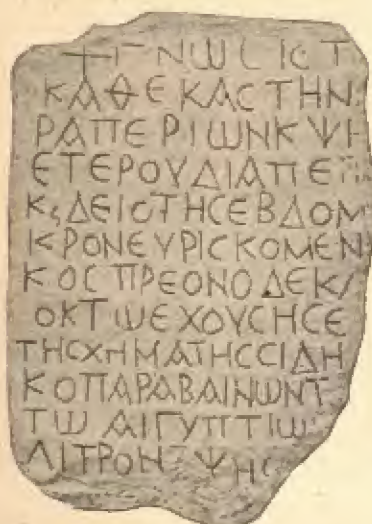 + ΓΝωCΙCΤ
ΚΑΘΕΚΑCΤΗΝ
ΡΑΠΕΡΙωΝΚΨΙ
ΕΤΕΡΟΥΔΙΑΠΕ
ΚϛΔΕΙΟΤΗCΕΒΔΟΜ
ΙΚΡΟΝΕΥΡΙCΚΟΜΕΝ
ΚΟCΠΡΕΟΝΟΔΕΚ/
ΟΚΤωΕΧΟΥCΗCΕ
ΤΗCΧΗΜΑΤΗCCΙΔΗ
ΚΟΠΑΡΑΒΑΙΝωΝΤ
Τω ΑΙΓΥΠΤΙω
ΛΙΤΡΟΗ ΨΗC